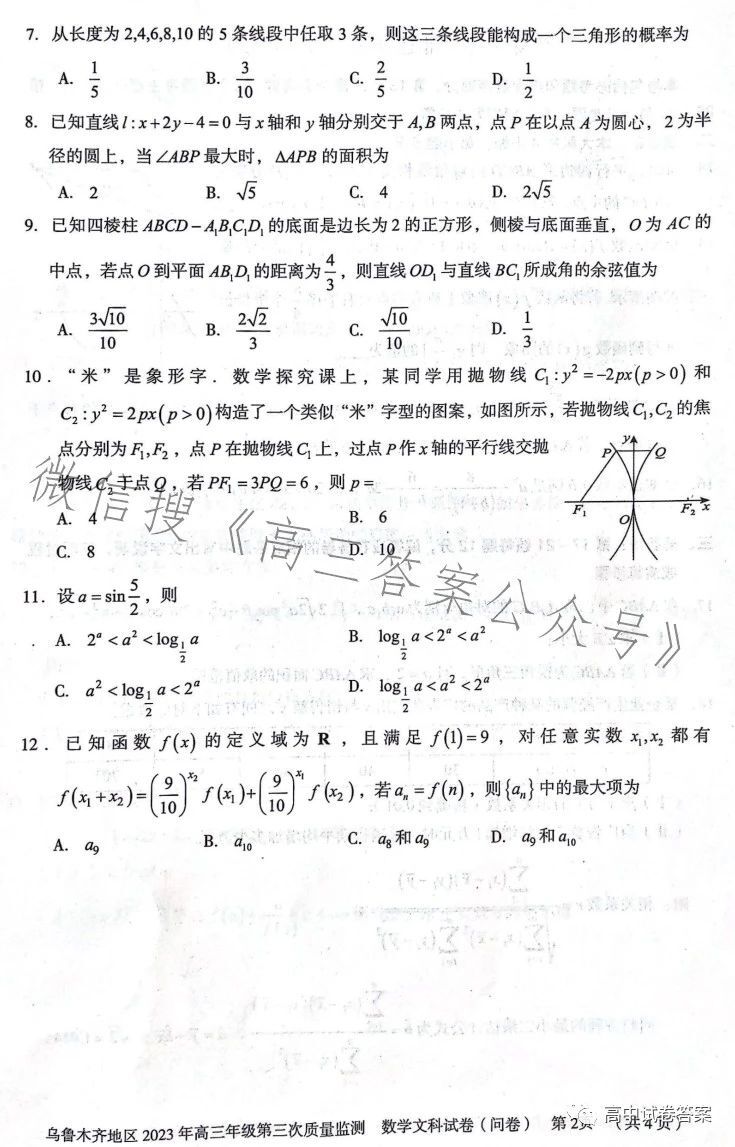 7. 从长度为 2,4,6,8,10 的 5 条线段中任取 3 条，则这三条线段能构成一个三角形的概率为
A. 1/5 B. 3/10 C. 2/5 D. 1/2
8. 已知直线 l:x+2y−4=0 与 x 轴和 y 轴分别交于 A,B 两点，点 P 在以点 A 为圆心，2 为半
径的圆上，当 ∠ABP 最大时，△APB 的面积为
A. 2 B. √5 C. 4 D. 2√5
9. 已知四棱柱 ABCD−A₁B₁C₁D₁ 的底面是边长为 2 的正方形，侧棱与底面垂直，O 为 AC 的
中点，若点 O 到平面 AB₁D₁ 的距离为 4/3，则直线 OD₁ 与直线 BC₁ 所成角的余弦值为
A. 3√10/10 B. 2√2/3 C. √10/10 D. 1/3
10. “米”是象形字. 数学探究课上，某同学用抛物线 C₁:y²=−2px(p>0) 和
C₂:y²=2px(p>0) 构造了一个类似“米”字型的图案，如图所示，若抛物线 C₁,C₂ 的焦
点分别为 F₁,F₂，点 P 在抛物线 C₁ 上，过点 P 作 x 轴的平行线交抛
物线 C₂ 于点 Q，若 PF₁=3PQ=6，则 p=
A. 4 B. 6
C. 8 D. 10
y P Q F₁ O F₂ x
11. 设 a=sin 5/2，则
A. 2ᵃ<a²<log_{1/2} a B. log_{1/2} a<2ᵃ<a²
C. a²<log_{1/2} a<2ᵃ D. log_{1/2} a<a²<2ᵃ
12. 已知函数 f(x) 的定义域为 R，且满足 f(1)=9，对任意实数 x₁,x₂ 都有
f(x₁+x₂)=(9/10)^{x₂} f(x₁)+(9/10)^{x₁} f(x₂)，若 aₙ=f(n)，则{aₙ}中的最大项为
A. a₉ B. a₁₀ C. a₈ 和 a₉ D. a₉ 和 a₁₀
微信搜《高三答案公众号》
高中试卷答案
乌鲁木齐地区 2023 年高三年级第三次质量监测 数学文科试卷（问卷） 第 2 页 （共 4 页）